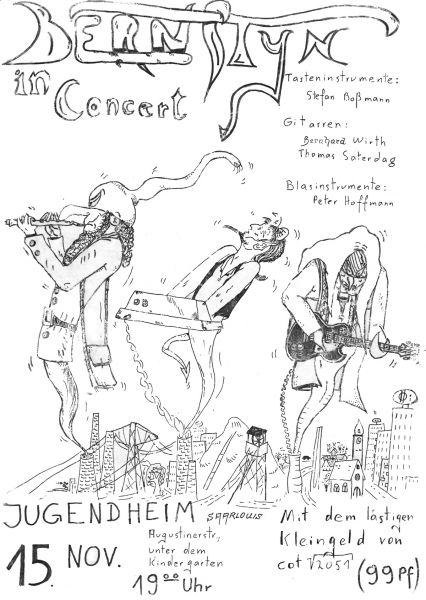 BERNSTEYN
in Concert
Tasteninstrumente:
Stefan Boßmann
Gitarren:
Bernhard Wirth
Thomas Saterdag
Blasinstrumente:
Peter Hoffmann
JUGENDHEIM SAARLOUIS
15. NOV.
Augustinerstr,
unter dem
Kindergarten
19⁰⁰ Uhr
Mit dem lästigen
Kleingeld von
cot √2051
(99pf)